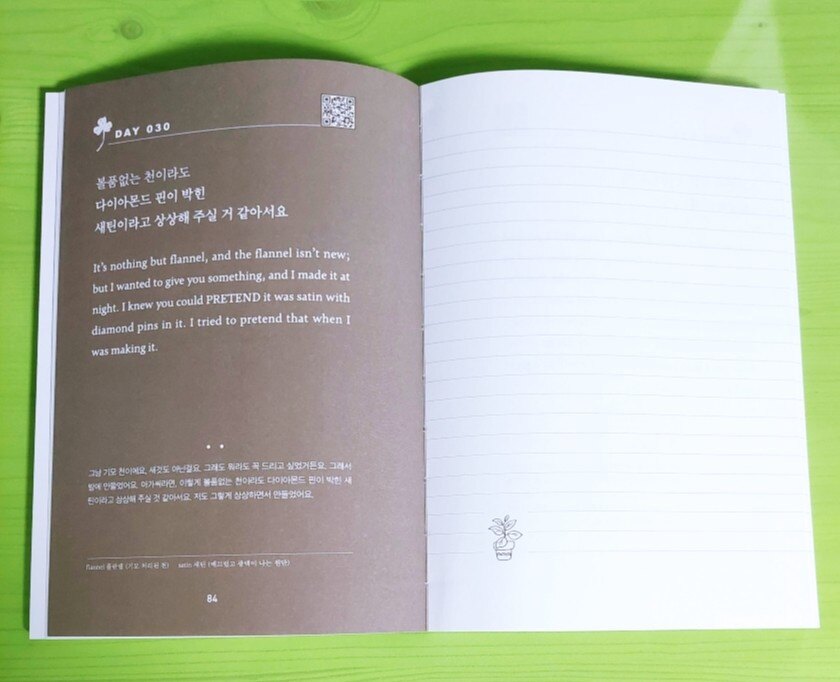 DAY 030
볼품없는 천이라도
다이아몬드 핀이 박힌
새틴이라고 상상해 주실 거 같아서요
It's nothing but flannel, and the flannel isn't new;
but I wanted to give you something, and I made it at
night. I knew you could PRETEND it was satin with
diamond pins in it. I tried to pretend that when I
was making it.
그냥 기모 천이에요, 새것도 아닌걸요. 그래도 뭐라도 꼭 드리고 싶었거든요. 그래서
밤에 만들었어요. 아가씨라면, 이렇게 볼품없는 천이라도 다이아몬드 핀이 박힌 새
틴이라고 상상해 주실 것 같아서요. 저도 그렇게 상상하면서 만들었어요.
flannel 플란넬 (기모 처리된 천) satin 새틴 (매끄럽고 광택이 나는 원단)
84